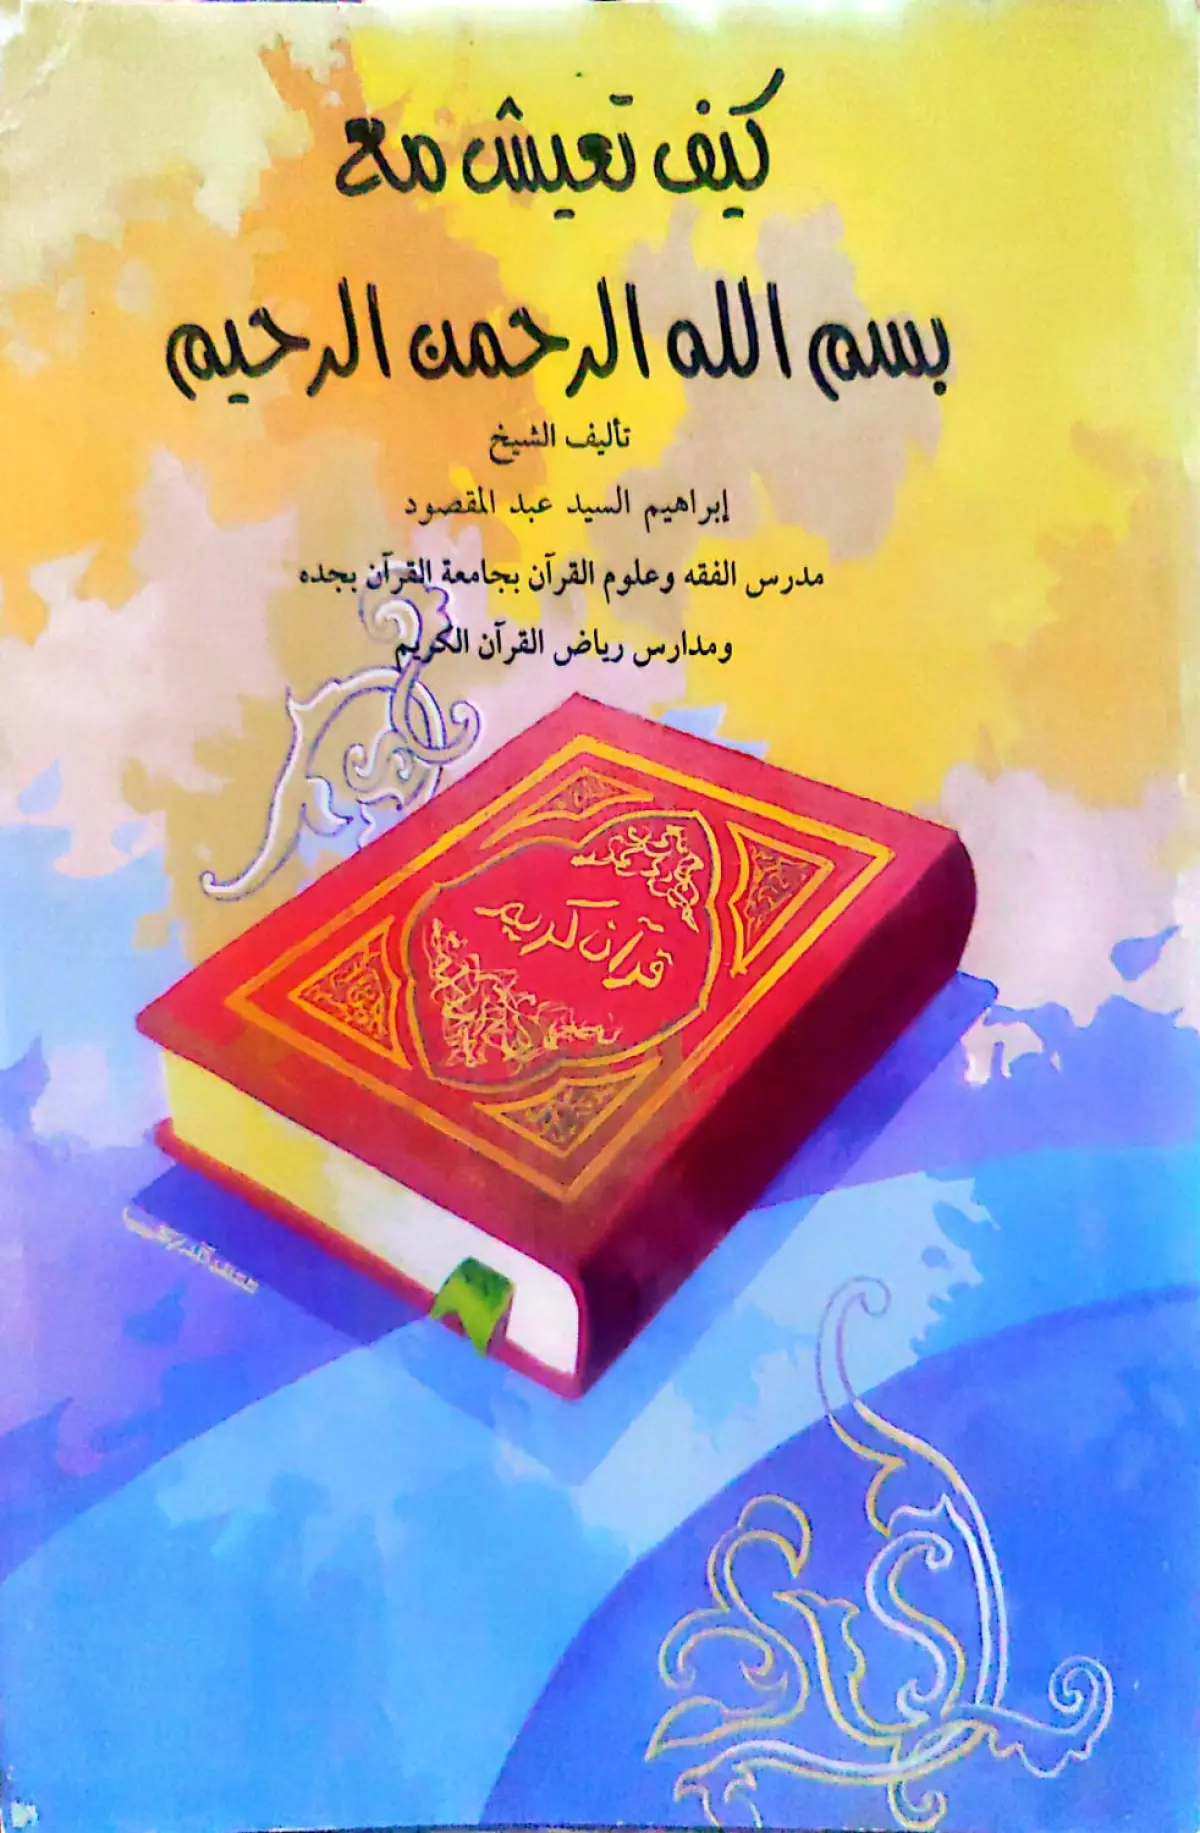 كيف تعيش مع
بسم الله الرحمن الرحيم
تأليف الشيخ
إبراهيم السيد عبد المقصود
مدرس الفقه وعلوم القرآن بجامعة القرآن بجده
ومدارس رياض القرآن الكريم
قرآن كريم